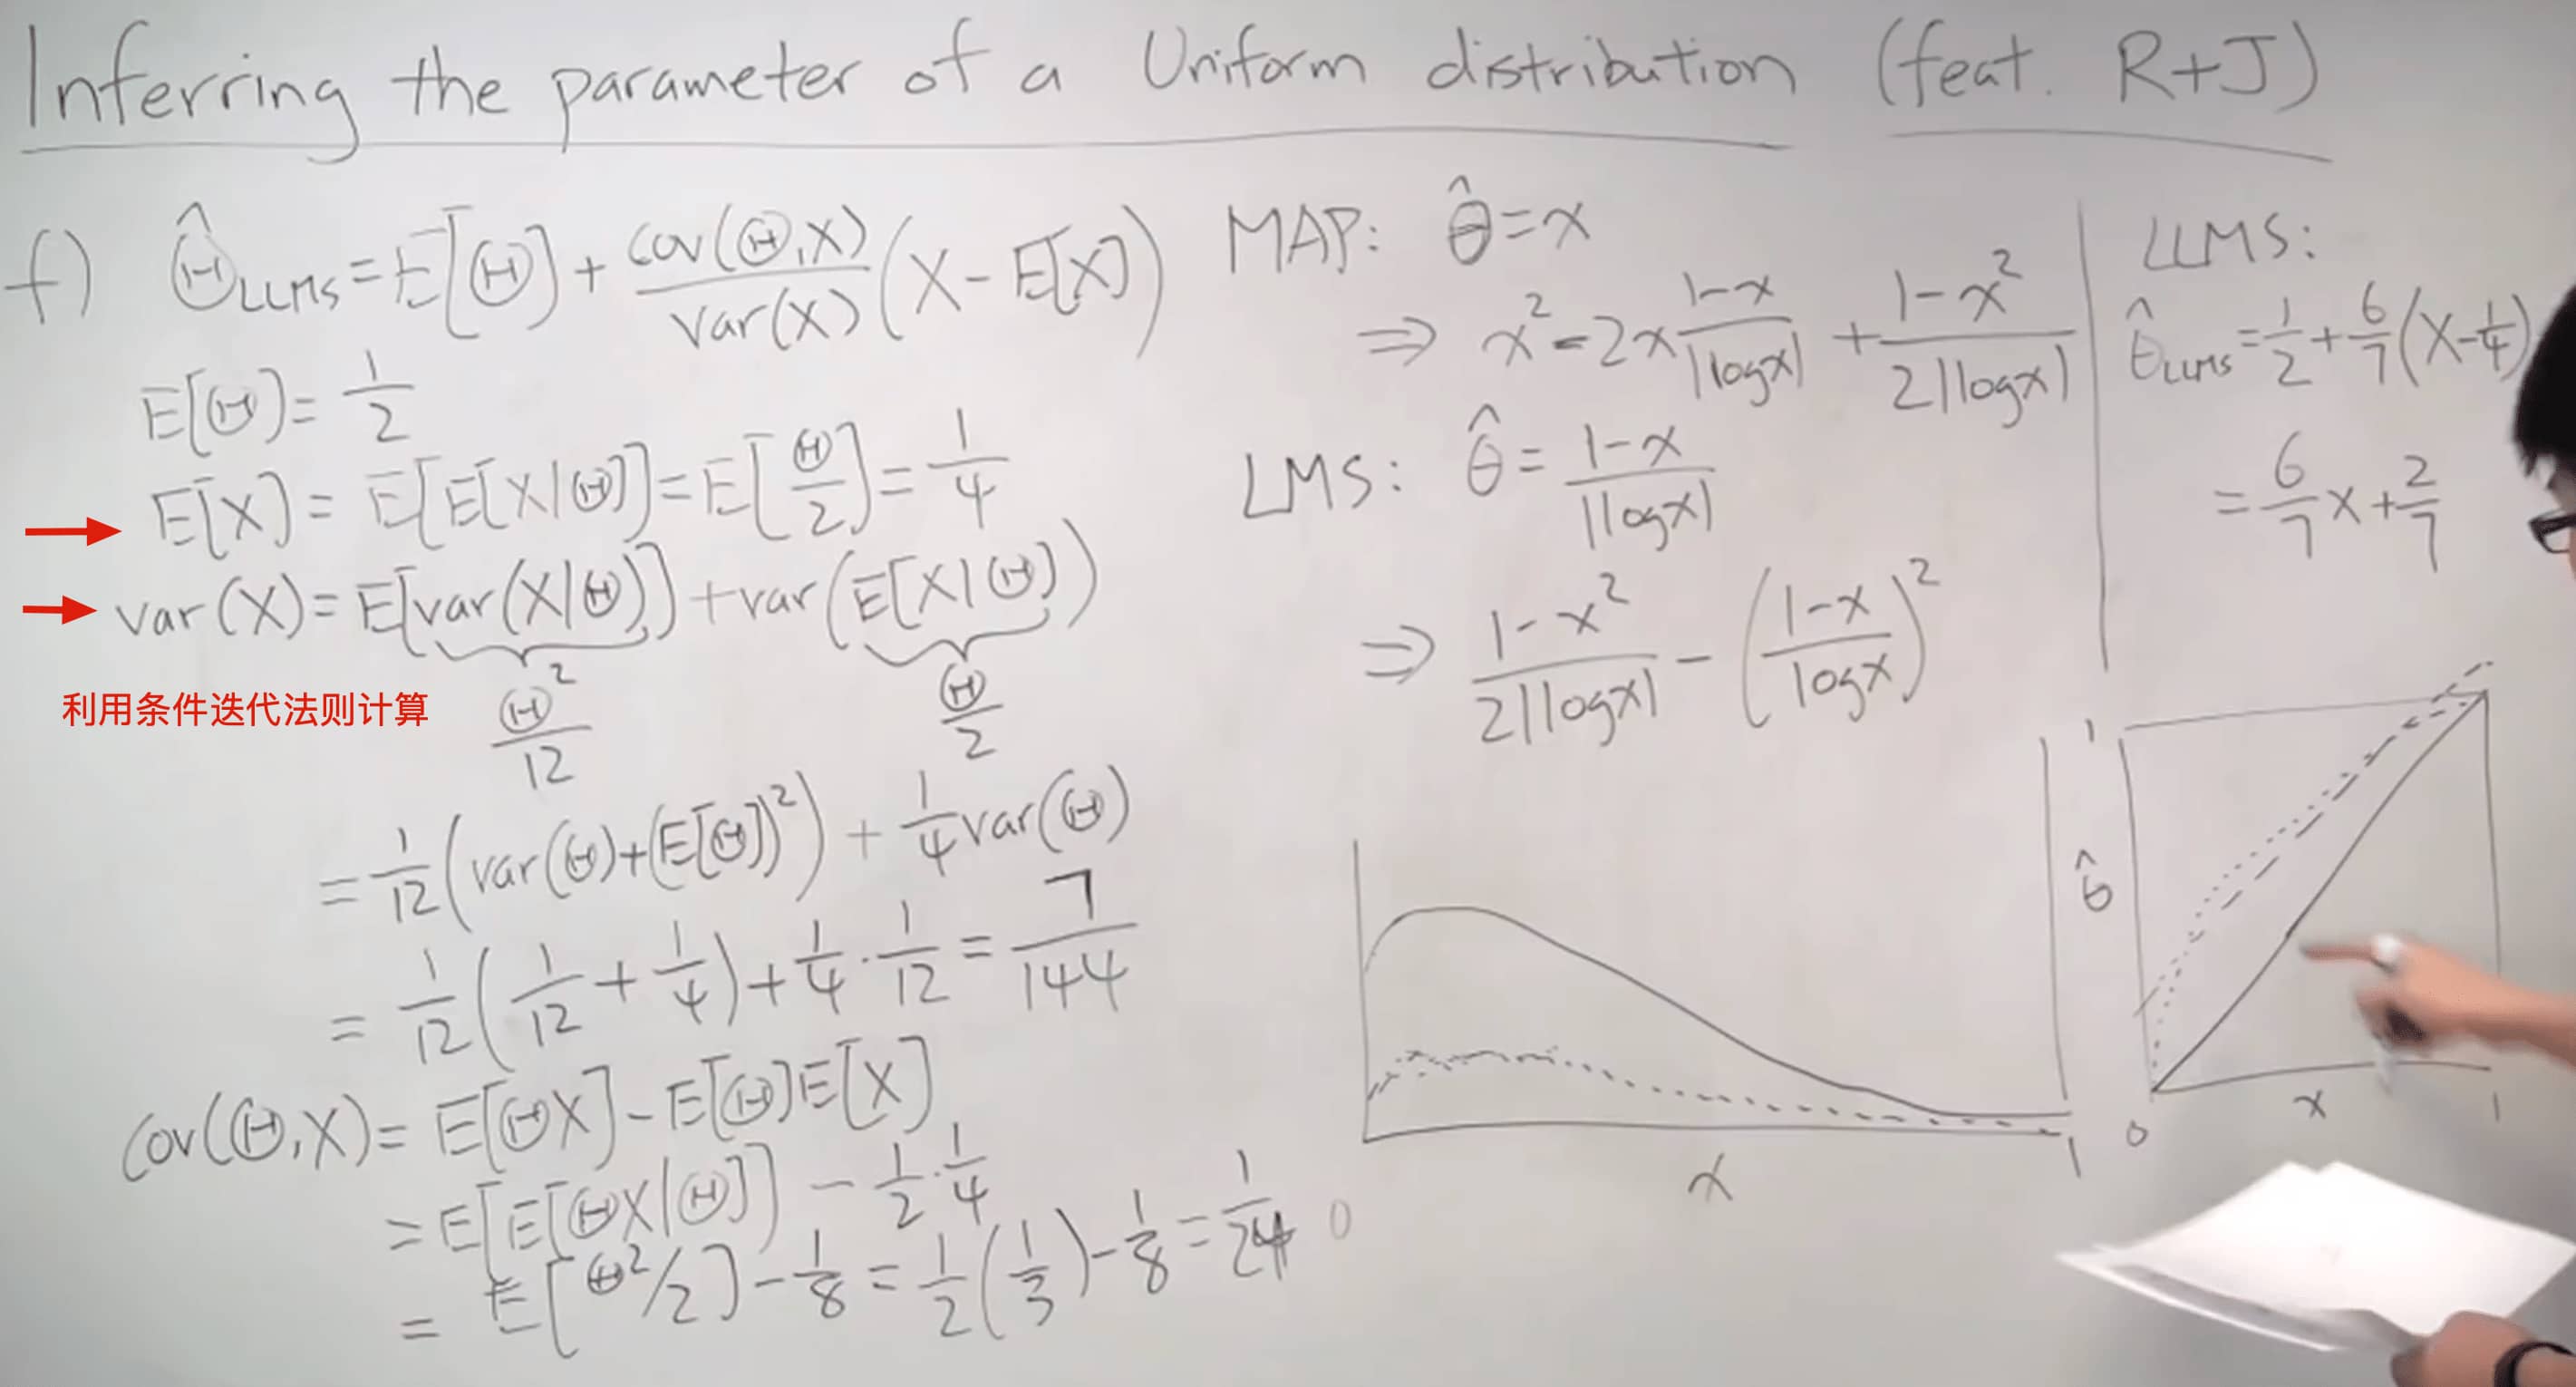 Inferring the parameter of a Uniform distribution (feat. R+J)
f) Θ̂_LLMS = E[Θ] + cov(Θ,X)/var(X) (X - E[X])
E[Θ] = 1/2
E[X] = E[E[X|Θ]] = E[Θ/2] = 1/4
var(X) = E[var(X|Θ)] + var(E[X|Θ])
利用条件迭代法则计算
Θ²/12 Θ/2
= 1/12 (var(Θ)+(E[Θ])²) + 1/4 var(Θ)
= 1/12 (1/12 + 1/4) + 1/4 · 1/12 = 7/144
cov(Θ,X) = E[ΘX] - E[Θ]E[X]
= E[E[ΘX|Θ]] - 1/2 · 1/4
= E[Θ²/2] - 1/8 = 1/2 (1/3) - 1/8 = 1/24
MAP: θ̂ = x
⇒ x² - 2x (1-x)/|logx| + (1-x²)/(2|logx|)
LMS: θ̂ = (1-x)/|logx|
⇒ (1-x²)/(2|logx|) - ((1-x)/logx)²
x
1
LLMS:
θ̂_LLMS = 1/2 + 6/7 (X - 1/4)
= 6/7 X + 2/7
1
θ̂
0
x
1